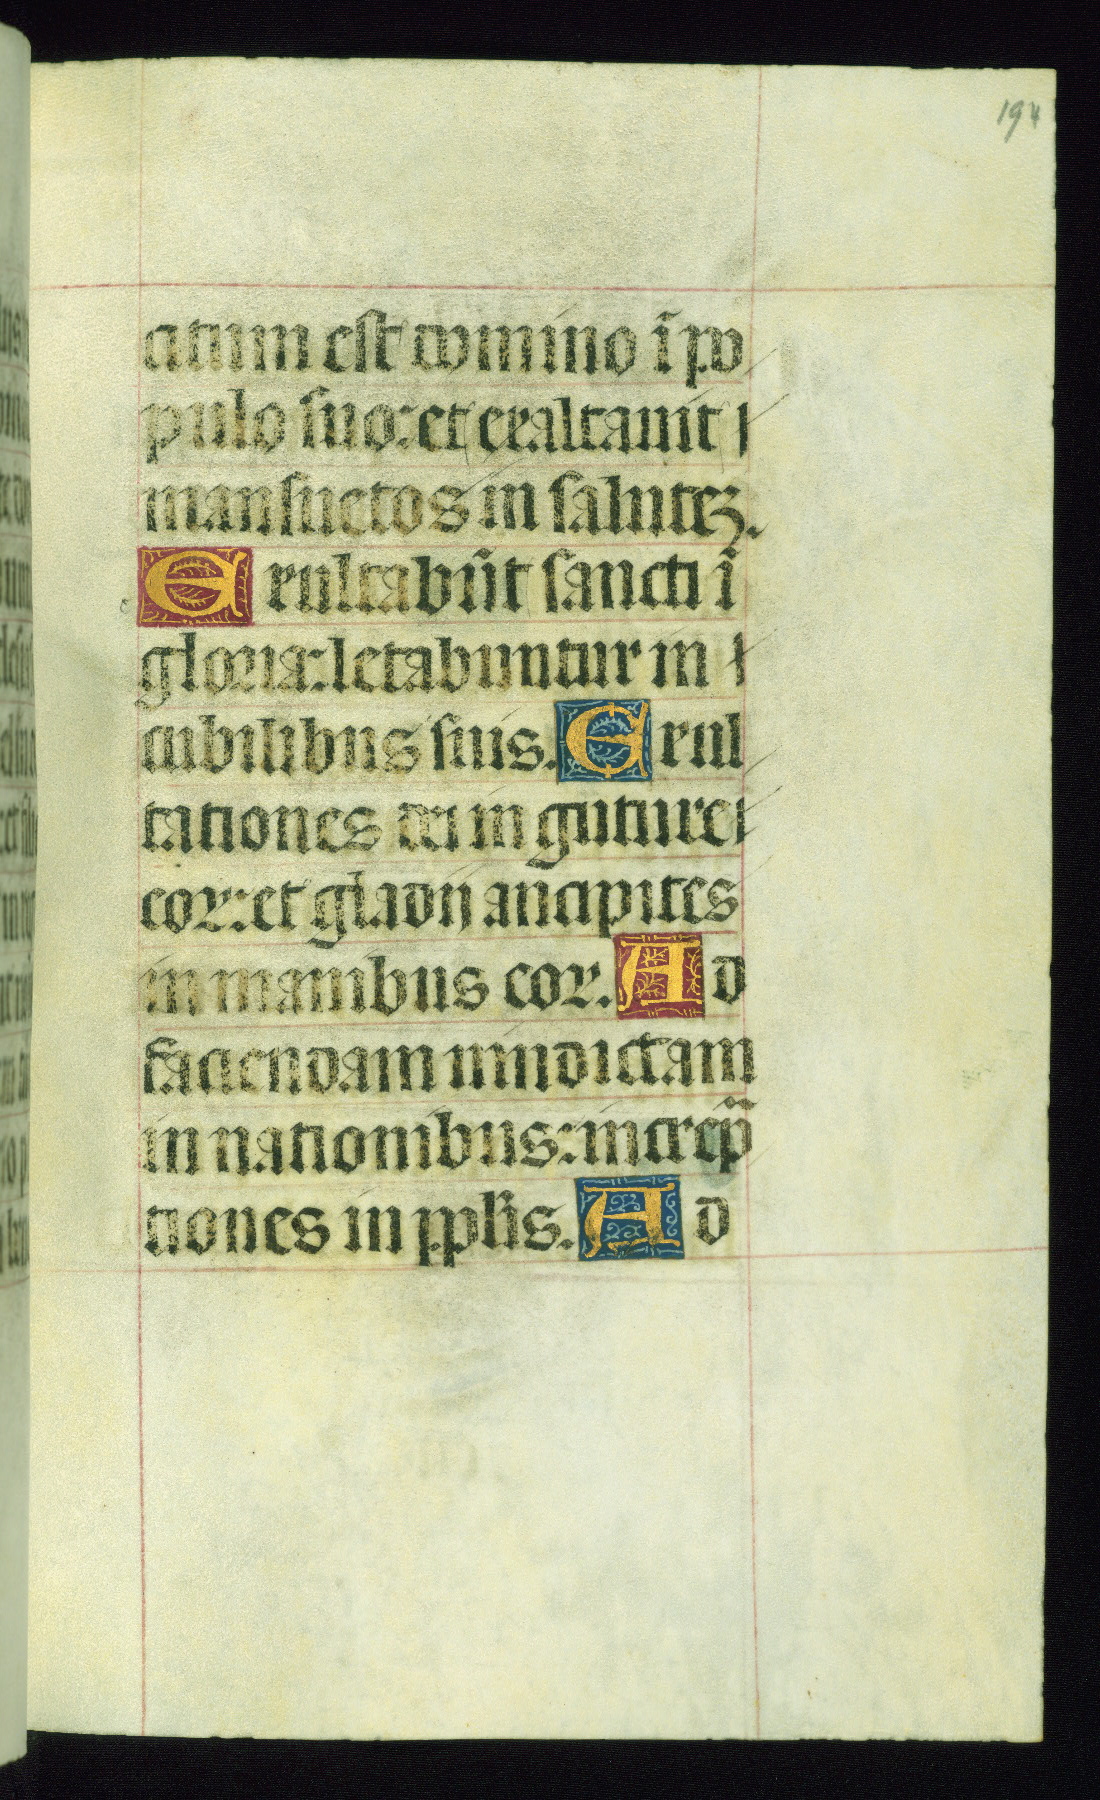 194
citum est domino ī po
pulo suo: et exaltavit
mansuetos in salutez.
Exultabūt sancti ī
gloria: letabuntur in
cubilibus suis. Exul
tationes dei in gutture
eoꝝ: et gladij ancipites
in manibus eoꝝ. Ad
faciendam vindictam
in nationibus: increp̄
tiones in pplis. Ad